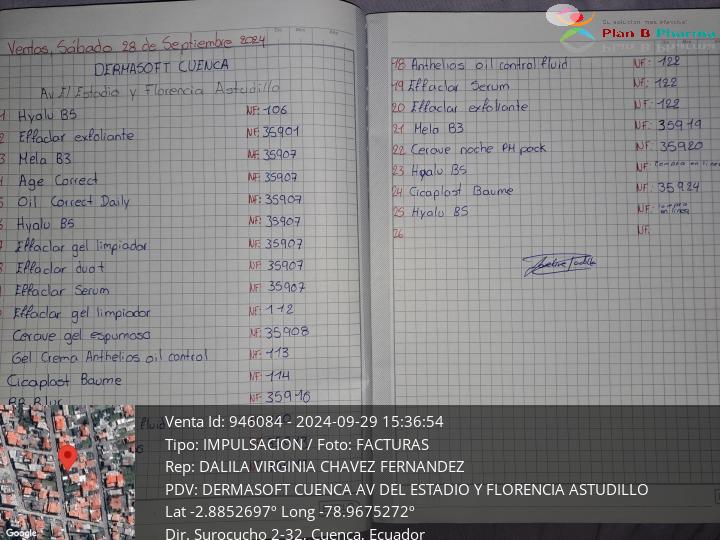 Ventas, Sábado 28 de Septiembre 2024
DERMASOFT CUENCA
Av El Estadio y Florencia Astudillo
1 Hyalu B5 NF: 106
2 Effaclar exfoliante NF: 35901
3 Mela B3 NF: 35907
Age Correct NF: 35907
Oil Correct Daily NF: 35907
Hyalu B5 NF: 35907
Effaclar gel limpiador NF: 35907
Effaclar duo+ NF: 35907
Effaclar Serum NF: 35907
Effaclar gel limpiador NF: 112
Cerave gel espumoso NF: 35908
Gel Crema Anthelios oil control NF: 113
Cicaplast Baume NF: 114
NF: 35910
fluid
18 Anthelios oil control fluid NF: 122
19 Effaclar Serum NF: 122
20 Effaclar exfoliante NF: 122
21 Mela B3 NF: 35919
22 Cerave noche PM pack NF: 35920
23 Hyalu B5 NF: compra en linea
24 Cicaplast Baume NF: 35924
25 Hyalu B5 NF: compra en linea
26 NF:
Su solución más efectiva!
Plan B Pharma
Venta Id: 946084 - 2024-09-29 15:36:54
Tipo: IMPULSACION / Foto: FACTURAS
Rep: DALILA VIRGINIA CHAVEZ FERNANDEZ
PDV: DERMASOFT CUENCA AV DEL ESTADIO Y FLORENCIA ASTUDILLO
Lat -2.8852697° Long -78.9675272°
Dir. Surocucho 2-32, Cuenca, Ecuador
Google